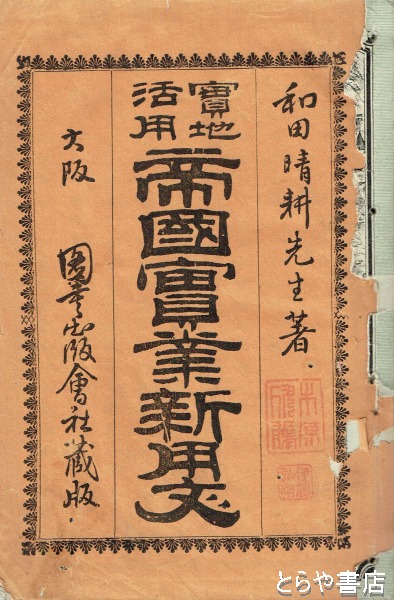 和田晴耕先生著.
實地
活用
帝國實業新用文
大阪
圖書出版會社蔵版.
とらや書店